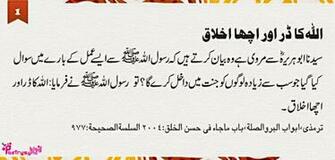 1
اللہ کا ڈر اور اچھا اخلاق
سیدنا ابوہریرہؓ سے مروی ہے وہ بیان کرتے ہیں کہ رسول اللہ ﷺ سے ایسے عمل کے بارے میں سوال
کیا گیا جو سب سے زیادہ لوگوں کو جنت میں داخل کرے گا؟ تو رسول اللہ ﷺ نے فرمایا: اللہ کا ڈر اور
اچھا اخلاق۔
ترمذی، ابواب البر والصلة، باب ماجاء فی حسن الخلق: ۲۰۰۴ السلسة الصحیحة: ۹۷۷